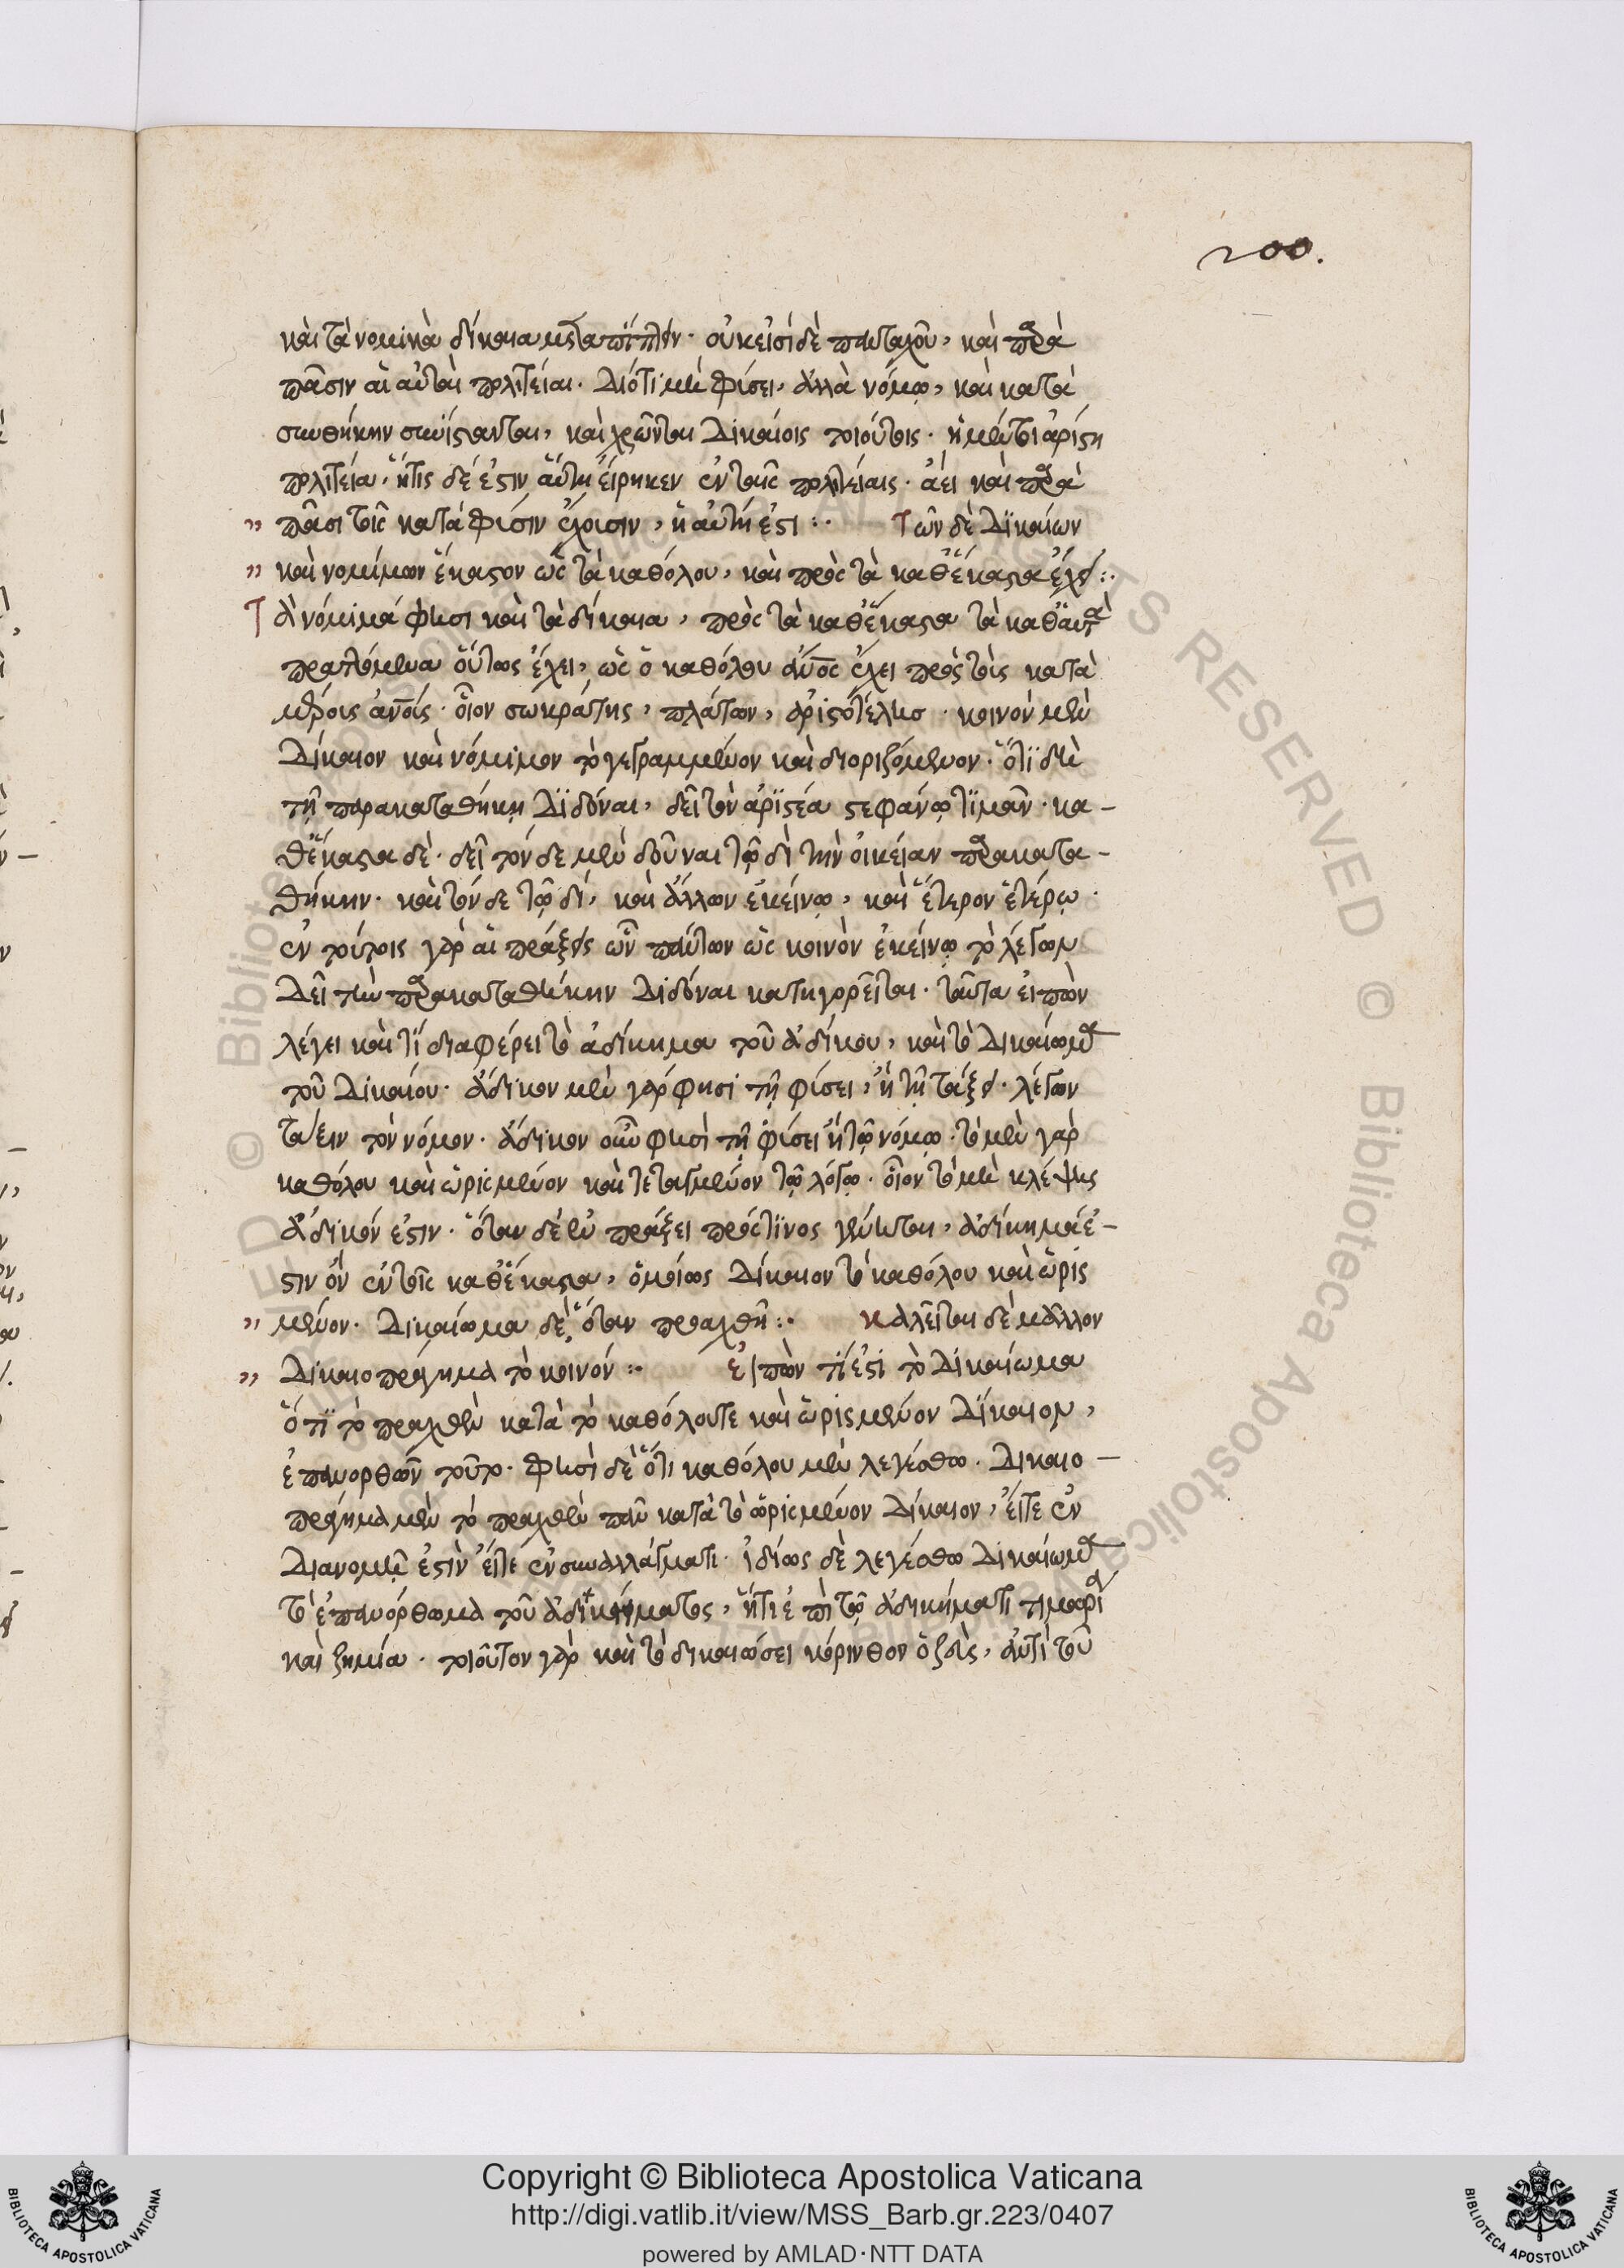 200.
καὶ τὰ νομικὰ δίκαια μεταπίπτειν· οὐκ εἰσὶ δὲ πανταχοῦ, καὶ παρὰ
πᾶσιν αἱ αὐταὶ πολιτεῖαι. Διότι μὴ φύσει, ἀλλὰ νόμῳ, καὶ κατὰ
συνθήκην συνίστανται, καὶ χρῶνται Δικαίοις τοιούτοις. ἡ μέντοι ἀρίστη
πολιτεία, ἥτις δέ ἐστιν αὕτη εἴρηκεν ἐν ταῖς πολιτείαις. ἀεὶ καὶ παρὰ
" πᾶσι τοῖς κατὰ φύσιν ἔχουσιν, ἡ αὐτή ἐστι :· Τῶν δὲ Δικαίων
" καὶ νομίμων ἕκαστον ὡς τὰ καθόλου, καὶ πρὸς τὰ καθέκαστα ἔχει :·
Τὰ νόμιμά φησι καὶ τὰ δίκαια, πρὸς τὰ καθέκαστα τὰ καθ' αὑτὰ
πραττόμενα οὕτως ἔχει, ὡς ὁ καθόλου ἄνος ἔχει πρὸς τοὺς κατὰ
μέρους ἀνούς. οἷον σωκράτης, πλάτων, ἀριστοτέλης. κοινὸν μὲν
Δίκαιον καὶ νόμιμον τὸ γεγραμμένον καὶ διοριζόμενον. ὅτι δεῖ
τὴν παρακαταθήκην Διδόναι, δεῖ τὸν ἀριστέα στεφάνῳ τιμᾶν. κα-
θέκαστα δὲ. δεῖ τόνδε μὲν δοῦναι τῷδὶ τὴν οἰκείαν παρακατα-
θήκην. καὶ τόνδε τῷδί, καὶ ἄλλον ἐκείνῳ, καὶ ἕτερον ἑτέρῳ.
ἐν τούτοις γὰρ αἱ πράξεις ὧν πάντων ὡς κοινὸν ἐκείνῳ τὸ λέγον
Δεῖ τὴν παρακαταθήκην Διδόναι κατηγορεῖται. ταῦτα εἰπὼν
λέγει καὶ τί διαφέρει τὸ ἀδίκημα τοῦ ἀδίκου, καὶ τὸ Δικαίωμα
τοῦ Δικαίου. ἄδικον μὲν γάρ φησι τῇ φύσει, ἢ τῇ τάξει. λέγων
τάξιν τὸν νόμον. ἄδικον οὖν φησὶ τῇ φύσει ἢ τῷ νόμῳ. τὸ μὲν γὰρ
καθόλου καὶ ὡρισμένον καὶ τεταγμένον τῷ λόγῳ. οἷον τὸ μὴ κλέψης
ἄδικόν ἐστιν. ὅταν δὲ ἐν πράξει πρός τινος γένηται, ἀδίκημά ἐ-
στιν ὂν ἐν τοῖς καθέκαστα, ὁμοίως Δίκαιον τὸ καθόλου καὶ ὡρις
" μένον. Δικαίωμα δὲ, ὅταν πραχθῇ :· καλεῖται δὲ μᾶλλον
" Δικαιοπράγημα τὸ κοινόν :· εἰπὼν τί ἐστι τὸ Δικαίωμα
ὅτι τὸ πραχθὲν κατὰ τὸ καθόλουτε καὶ ὡρισμένον Δίκαιον,
ἐπανορθῶν τοῦτο. Φησὶ δὲ ὅτι καθόλου μὲν λεγέσθω. Δικαιο-
πράγημα μὲν τὸ πραχθὲν πᾶν κατὰ τὸ ὡρισμένον Δίκαιον, εἴτε ἐν
Διανομῇ ἐστὶν εἴτε ἐν συναλλάγματι. ἰδίως δὲ λεγέσθω Δικαίωμα
τὸ ἐπανόρθωμα τοῦ ἀδικήματος, ἥτι ἐπὶ τῷ ἀδικήματι τιμωρία
καὶ ζημία. τοιοῦτον γὰρ καὶ τὸ δικαιώσει κόρινθον ὀξδὶς, ἀντὶ τοῦ
Copyright © Biblioteca Apostolica Vaticana
http://digi.vatlib.it/view/MSS_Barb.gr.223/0407
powered by AMLAD·NTT DATA